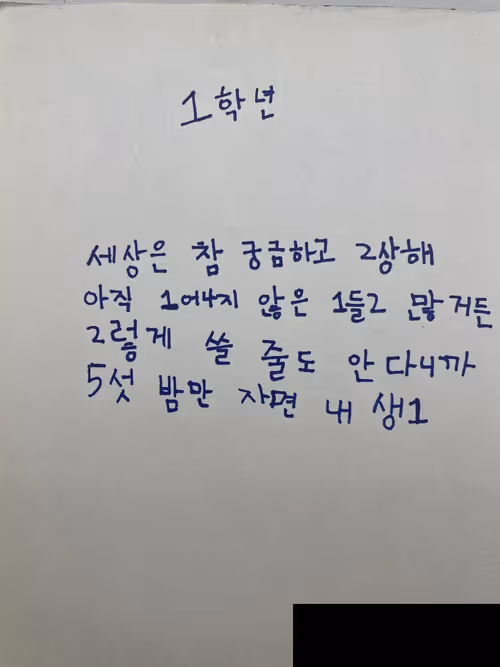 1학년
세상은 참 궁금하고 2상해
아직 1어4지 않은 1들2 많거든
2렇게 쓸 줄도 안다4까
5섯 밤만 자면 내 생1